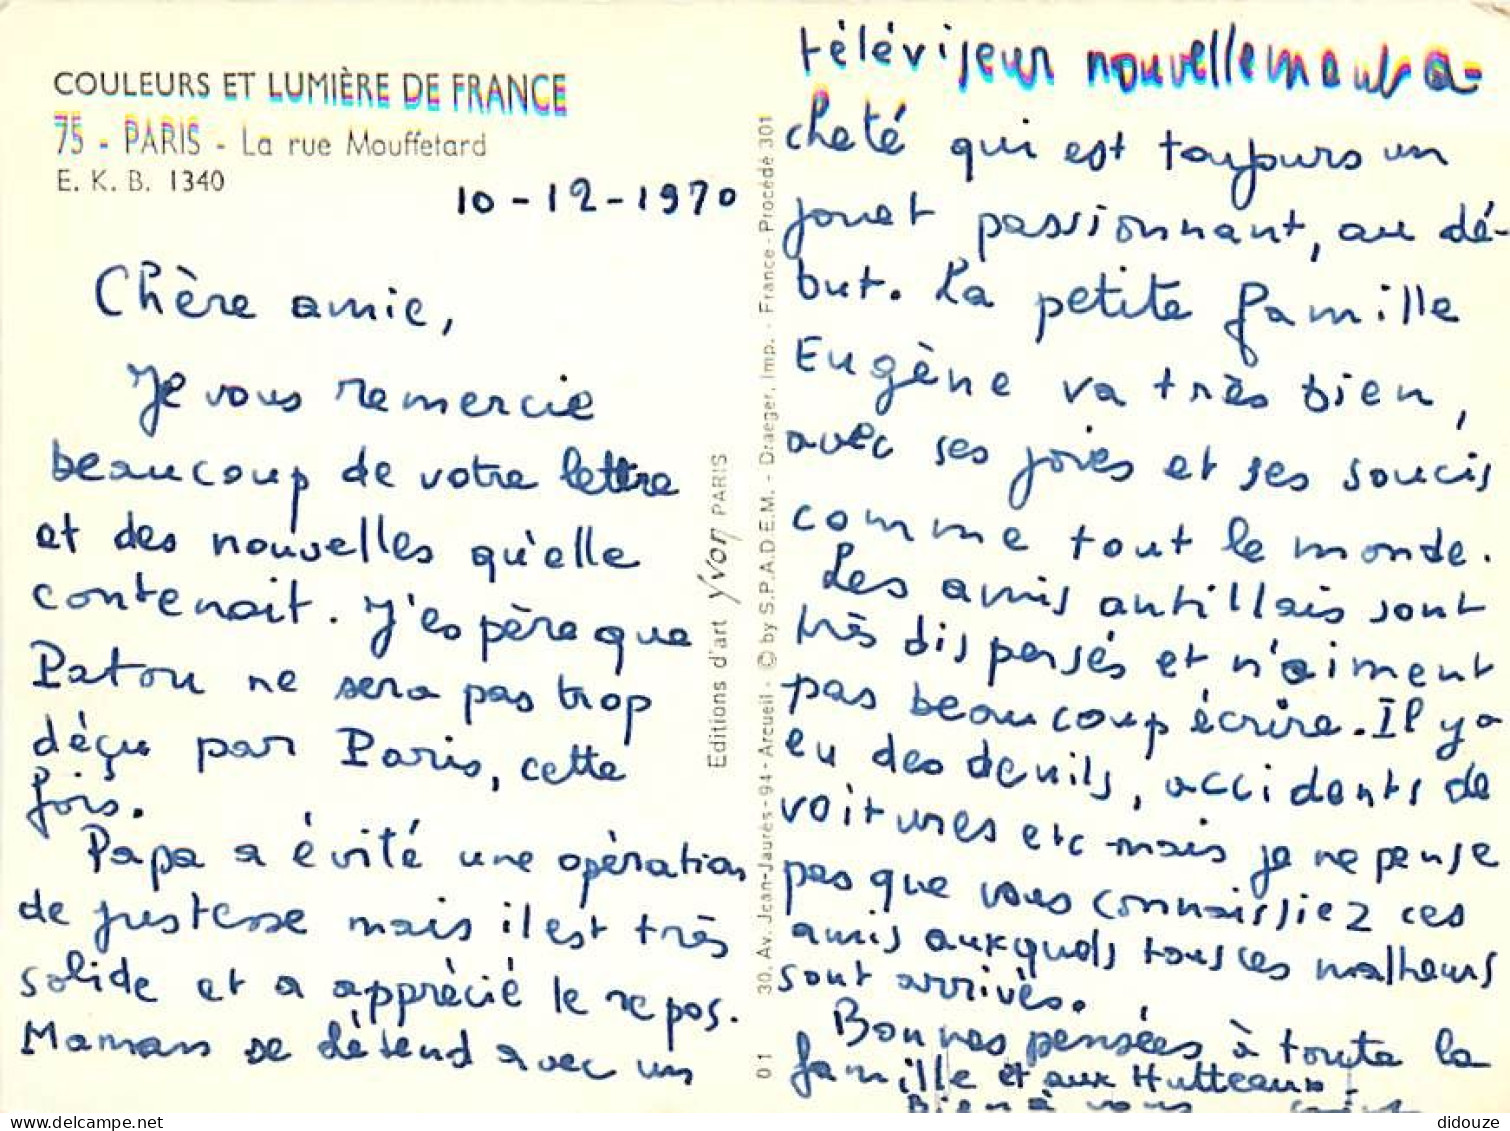 COULEURS ET LUMIÈRE DE FRANCE
75 - PARIS - La rue Mouffetard
E. K. B. 1340
10-12-1970
Chère amie,
Je vous remercie
beaucoup de votre lettre
et des nouvelles qu'elle
contenait. J'espère que
Patou ne sera pas trop
déçu par Paris, cette
fois.
Papa a évité une opération
de justesse mais il est très
solide et a apprécié le repos.
Maman se détend avec un
téléviseur nouvellement a-
cheté qui est toujours un
jouet passionnant, au dé-
but. La petite famille
Eugène va très bien,
avec ses joies et ses soucis
comme tout le monde.
Les amis antillais sont
très dispersés et n'aiment
pas beaucoup écrire. Il y a
eu des deuils, accidents de
voitures etc mais je ne pense
pas que vous connaissiez ces
amis auxquels tous ces malheurs
sont arrivés.
Bonnes pensées à toute la
famille et aux Hutteaux.
Bien à vous
Editions d'art Yvon PARIS
01 30, Av. Jean-Jaurès - 94 - Arcueil - © by S.P.A.D.E.M. - Draeger, Imp. - France - Procédé 301
https://www.delcampe.net
didouze